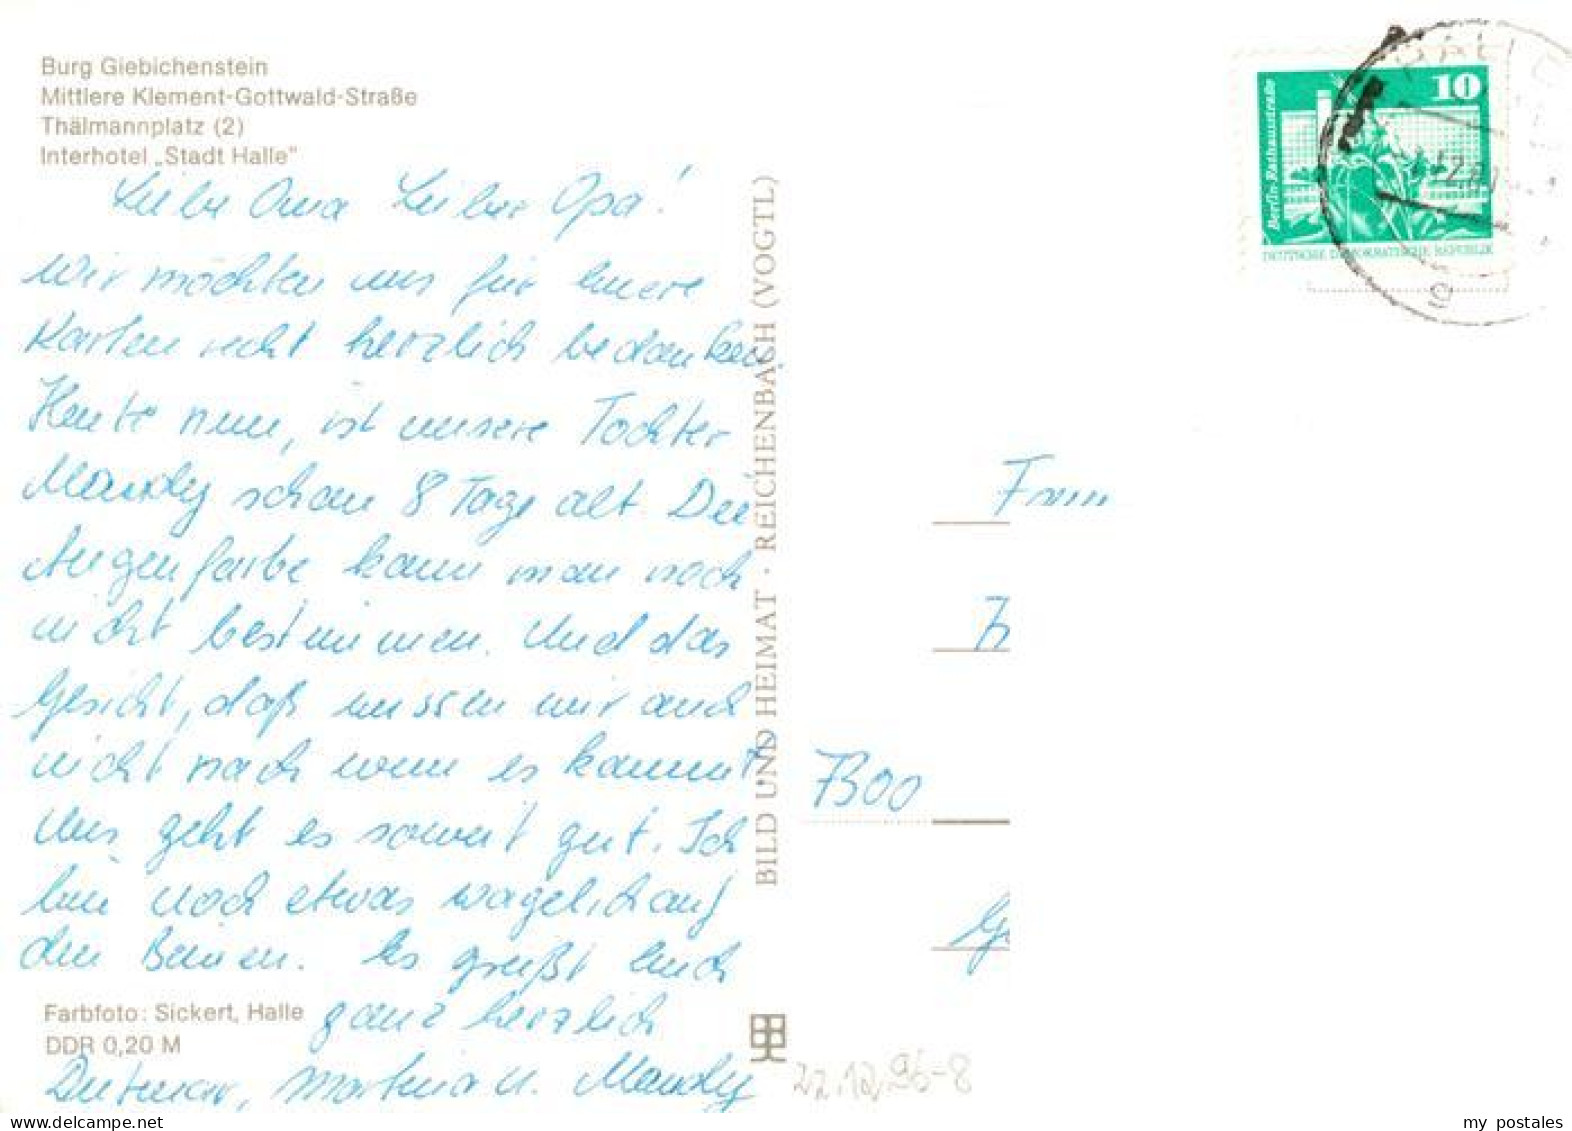 Burg Giebichenstein
Mittlere Klement-Gottwald-Straße
Thälmannplatz (2)
Interhotel „Stadt Halle"
Liebe Oma Lieber Opa!
Wir möchten uns für Euere
Karten recht herzlich bedanken.
Heute nun, ist unsere Tochter
Mandy schon 8 Tage alt. Die
Augenfarbe kann man noch
nicht bestimmen. Und das
Gesicht, daß wissen wir auch
nicht nach wem es kommt.
Uns geht es soweit gut. Ich
bin noch etwas wagelich auf
den Beinen. Es grüßt Euch
ganz herzlich
Dietmar, Martina u. Mandy
Farbfoto: Sickert, Halle
DDR 0,20 M
BILD UND HEIMAT · REICHENBACH (VOGTL)
10
Berlin-Rathausstraße
DEUTSCHE DEMOKRATISCHE REPUBLIK
9
7300
22.12.96-8
my postales